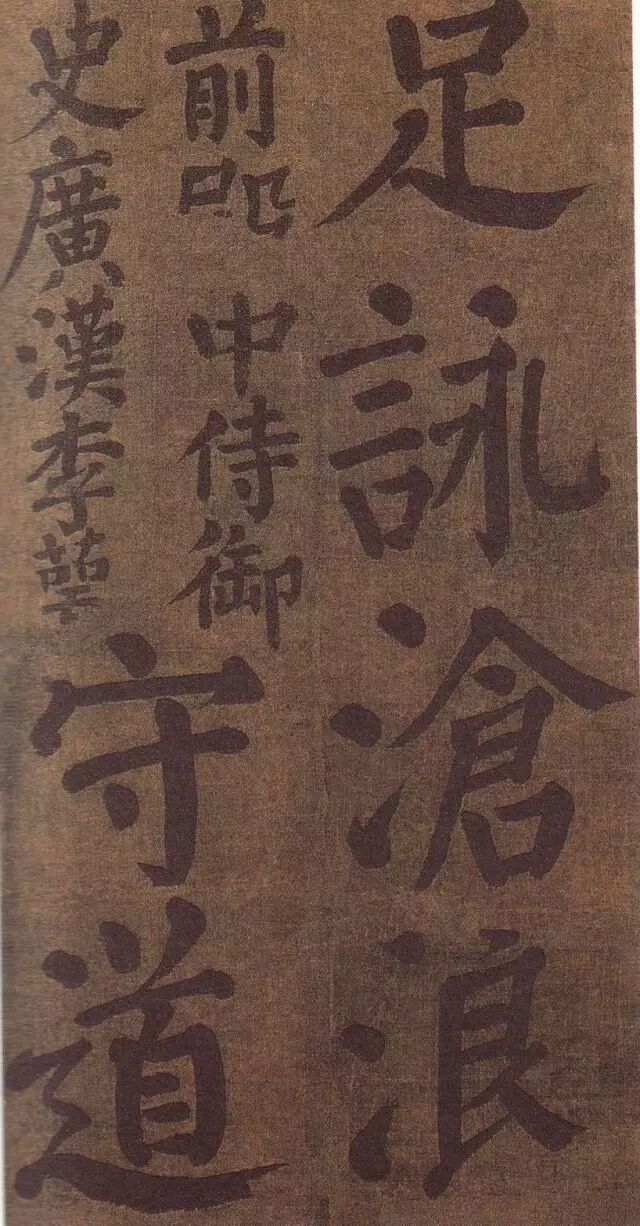 足詠滄浪
前 中侍御
史廣漢李
守道